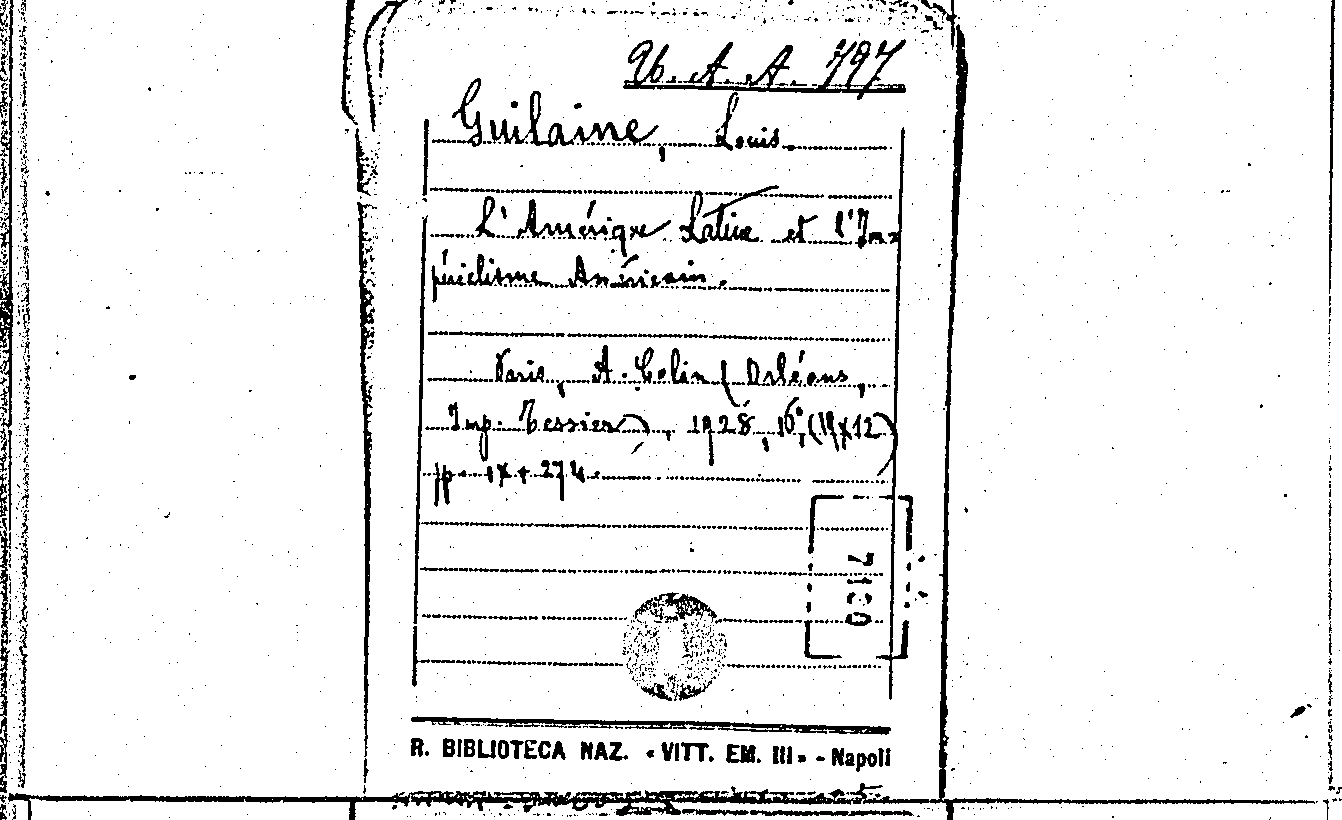 A. A. 797
Guilaine, Louis.
L'Amérique Latine et l'Im=
périalisme Américain.
Paris, A. Colin (Orléans,
Imp. Tessier), 1928, 16°, (19x12)
pp. IX + 274.
R. BIBLIOTECA NAZ. «VITT. EM. III» - Napoli